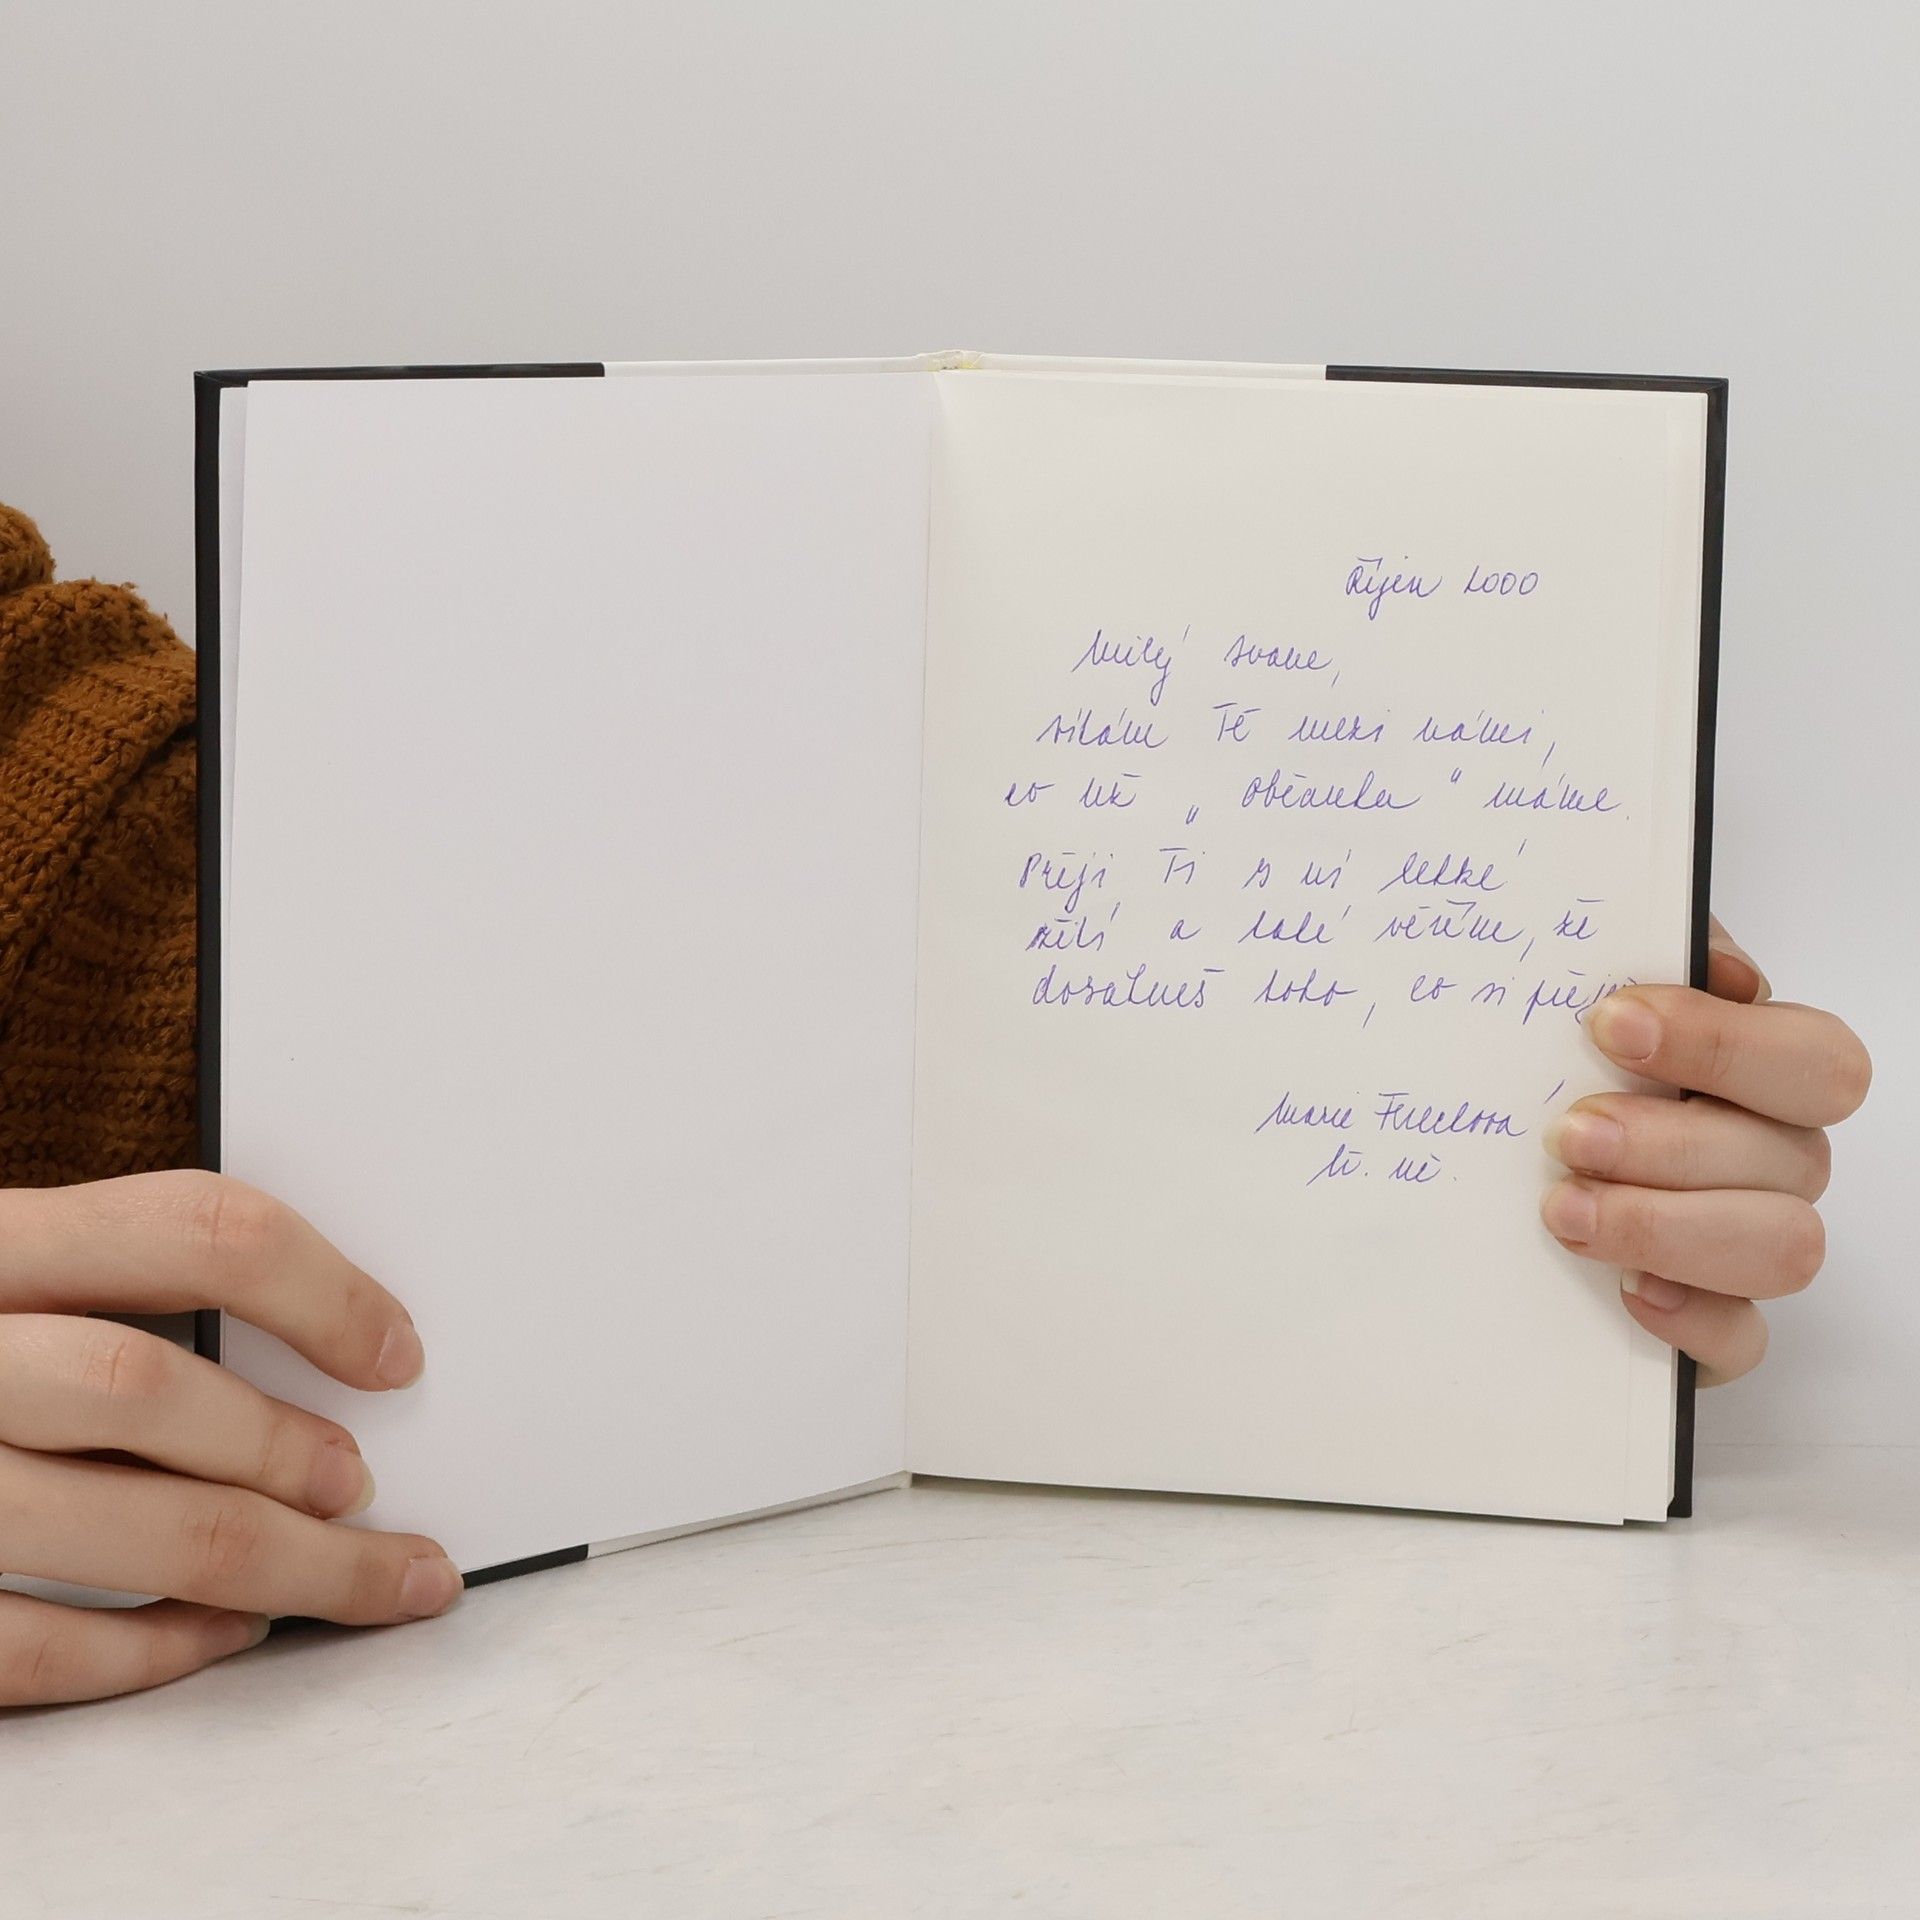 Říjen 2000
Milý
vítám Tě mezi námi,
co už „Občanku" máme.
Přeji Ti s ní lehké
žití a také věřím, že
dosáhneš toho, co si přeješ
Marie
tř. uč.